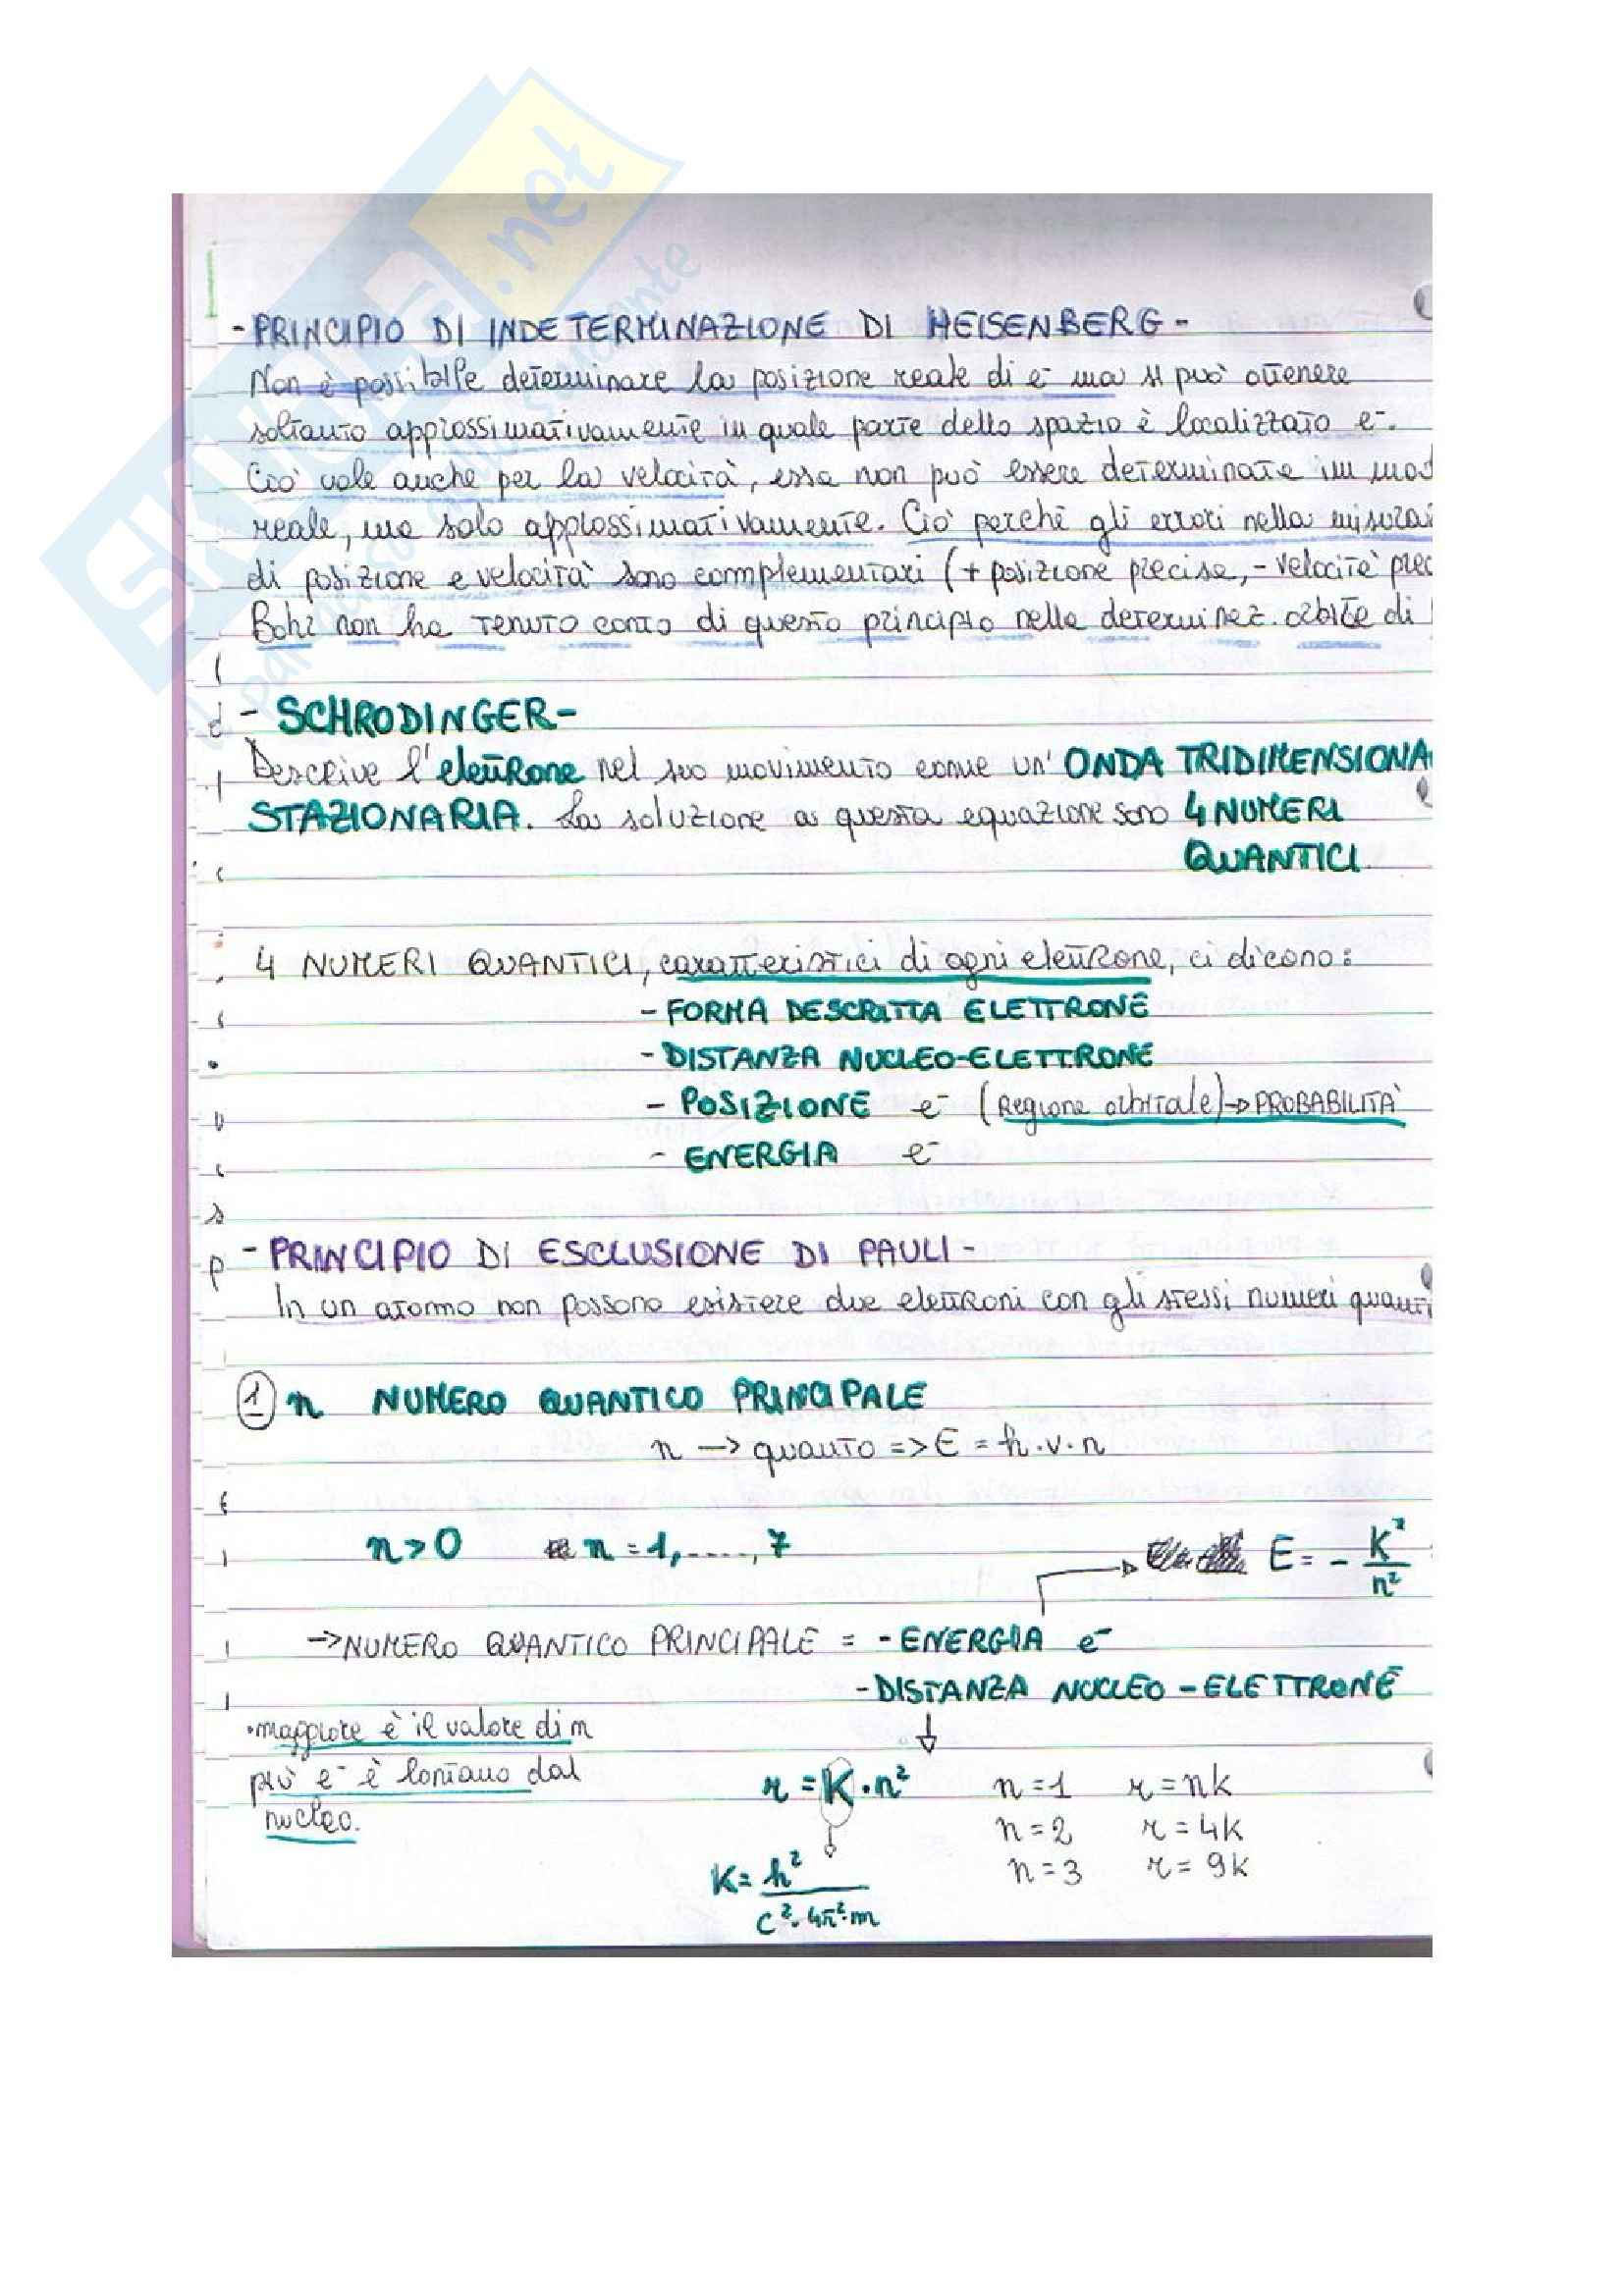 SKUOLA.net
- PRINCIPIO DI INDETERMINAZIONE DI HEISENBERG -
Non è possibile determinare la posizione reale di e⁻ ma si può ottenere
soltanto approssimativamente in quale parte dello spazio è localizzato e⁻.
Ciò vale anche per la velocità, essa non può essere determinata in mod
reale, ma solo approssimativamente. Ciò perché gli errori nella misuraz
di posizione e velocità sono complementari (+ posizione precisa, - velocità prec
Bohr non ha tenuto conto di questo principio nella determinaz. orbite di
- SCHRODINGER -
Descrive l'elettrone nel suo movimento come un' ONDA TRIDIMENSIONA
STAZIONARIA. La soluzione a questa equazione sono 4 NUMERI
QUANTICI.
4 NUMERI QUANTICI, caratteristici di ogni elettrone, ci dicono:
- FORMA DESCRITTA ELETTRONE
- DISTANZA NUCLEO-ELETTRONE
- POSIZIONE e⁻ (Regione orbitale) → PROBABILITÀ
- ENERGIA e⁻
- PRINCIPIO DI ESCLUSIONE DI PAULI -
In un atomo non possono esistere due elettroni con gli stessi numeri quanti
① n NUMERO QUANTICO PRINCIPALE
n → quanto => E = h·v·n
n > 0 n = 1, ....., 7
E = - K²/n²
→ NUMERO QUANTICO PRINCIPALE = - ENERGIA e⁻
- DISTANZA NUCLEO - ELETTRONE
• maggiore è il valore di n
più e⁻ è lontano dal
nucleo.
r = K · n² n = 1 r = nk
n = 2 r = 4k
n = 3 r = 9k
K = h²/c²·4π²·m